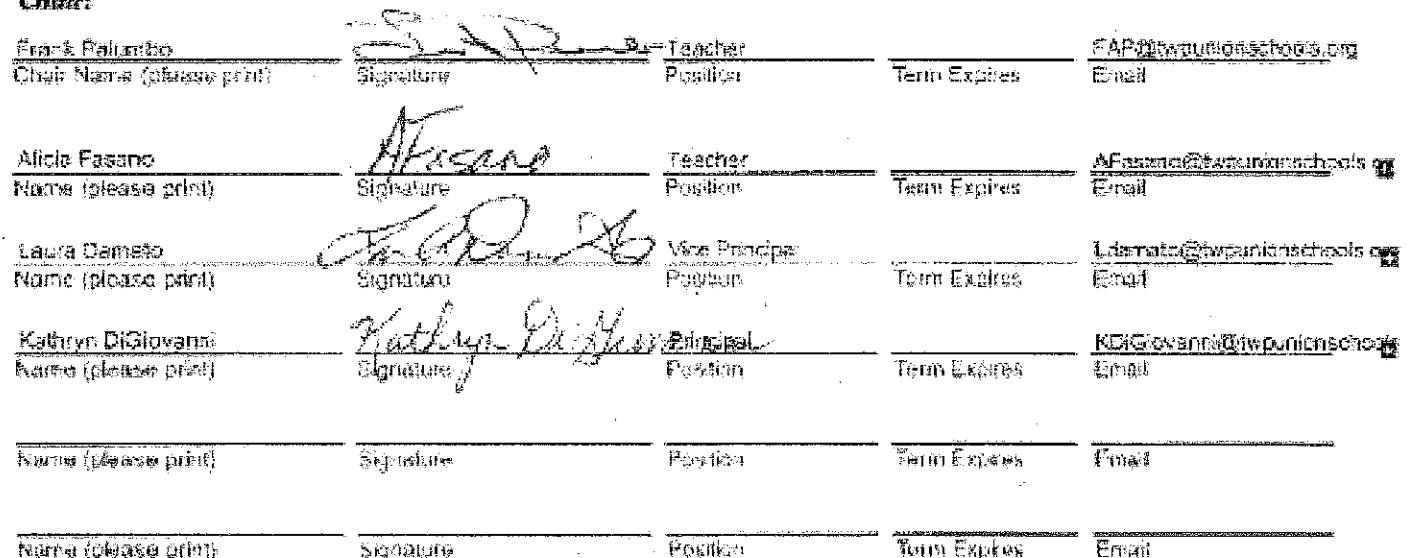 Chair:
Frank Palumbo Teacher FAP@twpunionschools.org
Chair Name (please print) Signature Position Term Expires Email
Alicia Fasano AFasano Teacher AFasano@twpunionschools.org
Name (please print) Signature Position Term Expires Email
Laura Damato Vice Principal Ldamato@twpunionschools.org
Name (please print) Signature Position Term Expires Email
Kathryn DiGiovanni Kathryn DiGiovanni Principal KDiGiovanni@twpunionschools
Name (please print) Signature Position Term Expires Email
Name (please print) Signature Position Term Expires Email
Name (please print) Signature Position Term Expires Email